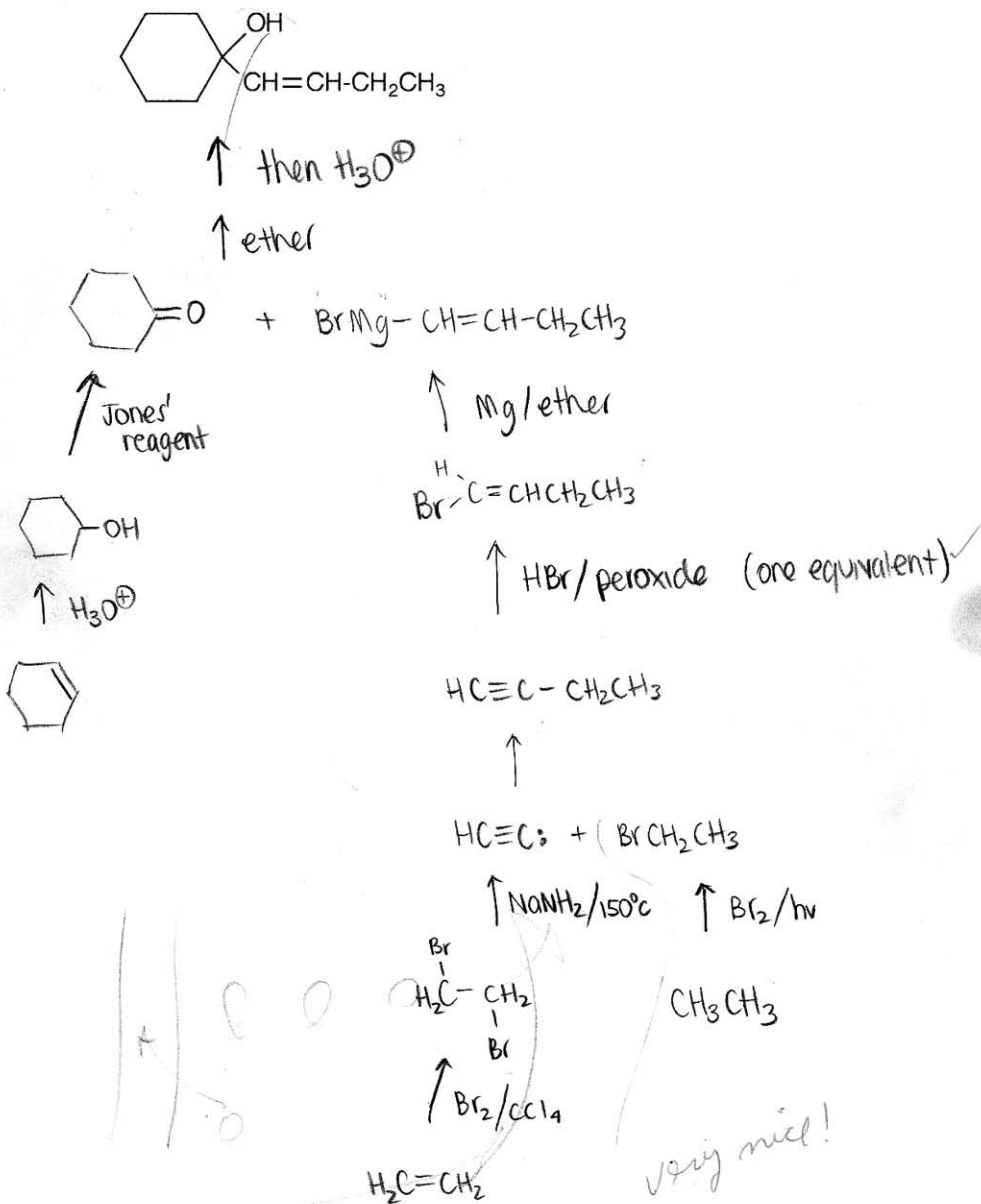 OH
CH=CH-CH₂CH₃
↑ then H₃O⊕
↑ ether
=O + BrMg-CH=CH-CH₂CH₃
Jones'
reagent
Mg/ether
H
Br C=CHCH₂CH₃
-OH
HBr/peroxide (one equivalent) ✓
↑ H₃O⊕
HC≡C-CH₂CH₃
HC≡C: + BrCH₂CH₃
↑ NaNH₂/150°C ↑ Br₂/hν
Br
H₂C-CH₂
Br
CH₃CH₃
Br₂/CCl₄
H₂C=CH₂
very nice!